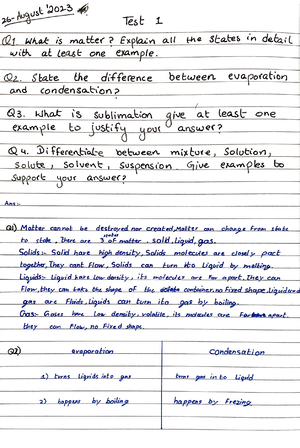 26-August '2023
Test 1
Q1. What is matter? Explain all the states in detail
with at least one example.
Q2. State the difference between evaporation
and condensation?
Q3. What is sublimation give at least one
example to justify your answer?
Q4. Differentiate between mixture, Solution,
Solute, Solvent, Suspension. Give examples to
support your answer?
Ans:-
Q1) Matter cannot be destroyed nor created, Matter can change from state
to state, There are 3 states of matter. solid, Liquid, gas.
Solids:- Solid have high density, Solids molecules are closely pact
together, They cant Flow, Solids can turn into Liquid by melting.
Liquids:- Liquid have Low density, its molecules are Far apart, They can
Flow, they can take the shape of the container, no Fixed shape, Liquid and
gas are Fluids, Liquids can turn into gas by boiling.
Gas:- Gases have Low density, volatile, its molecules are Far apart,
they can Flow, no Fixed shape.
Q2) evaporation condensation
1) turns Liquids into gas turns gas into Liquid
2) happens by boiling happens by frezing.